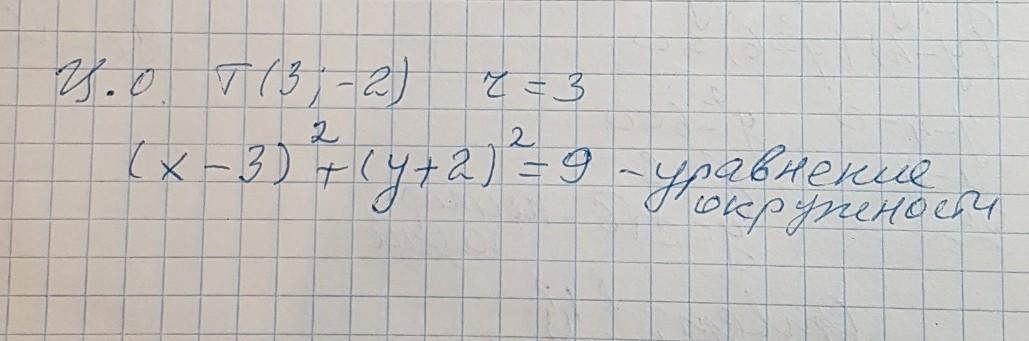 Ц.О. T(3;-2) r=3
(x-3)²+(y+2)²=9 -уравнение
окружности